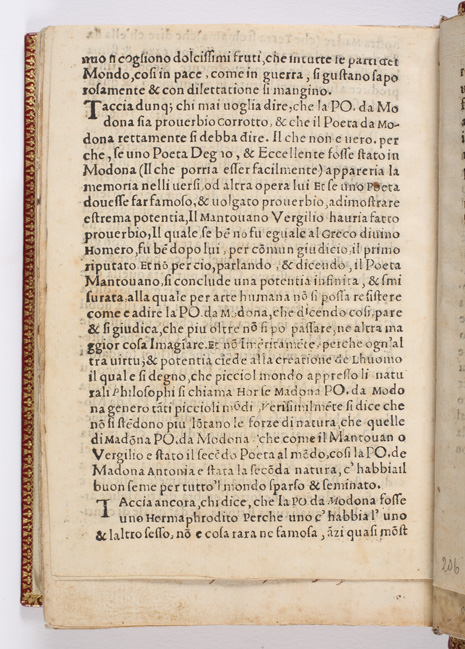 mo ñ cogliono dolcissimi fruti, che in tutte le parti del
Mondo, cosi in pace, come in guerra, si gustano sapo
rosamente & con dilettatione si mangino.
Taccia dunq; chi mai uoglia dire, che la PO. da Mo
dona sia prouerbio corrotto, & che il Poeta da Mo-
dona rettamente si debba dire. Il che non e uero. per
che, se uno Poeta Degno, & Eccellente fosse stato in
Modona (Il che porria esser facilmente) appareria la
memoria nelli uersi od altra opera lui Et se uno Poeta
douesse far famoso, & uolgato prouerbio, adimostrare
estrema potentia, Il Mantouano Vergilio hauria fatto
prouerbio, Il quale, se bẽ nõ fu eguale al Greco diuino
Homero, fu bẽ dopo lui, per cõmun giudicio, il primo
riputato Et nõ per cio, parlando, & dicendo, il Poeta
Mantouano, si conclude una potentia infinita, & smi
surata, alla quale per arte humana nõ si possa resistere
come e adire la PO. da Modona, che dicendo cosi, pare
& si giudica, che piu oltre nõ si po passare, ne altra ma
ggior cosa Imagiare. Et nõ Imeritamẽte, perche ogn'al
tra uirtu, & potentia ciede alla creatione de Lhuomo
il quale si degno, che picciol mondo appresso li natu
rali Philosophi si chiama Hor se Madona PO. da Modo
na genero tãti piccioli mõdi, Verisimilmẽte si dice che
nõ si stẽdono piu lõtano le forze di natura, che quelle
di Madõna PO. da Modona che come il Mantouano
Vergilio e stato il secẽdo Poeta al mẽdo, cosi la PO. de
Madona Antonia e stata la secẽda natura, c' habbia il
buon seme per tutto'l mondo sparso & seminato.
TAccia ancora, chi dice, che la PO da Modona fosse
uno Hermaphrodito Perche uno c' habbia l' uno
& laltro sesso, nõ e cosa rara ne famosa, ãzi quasi mõst
206